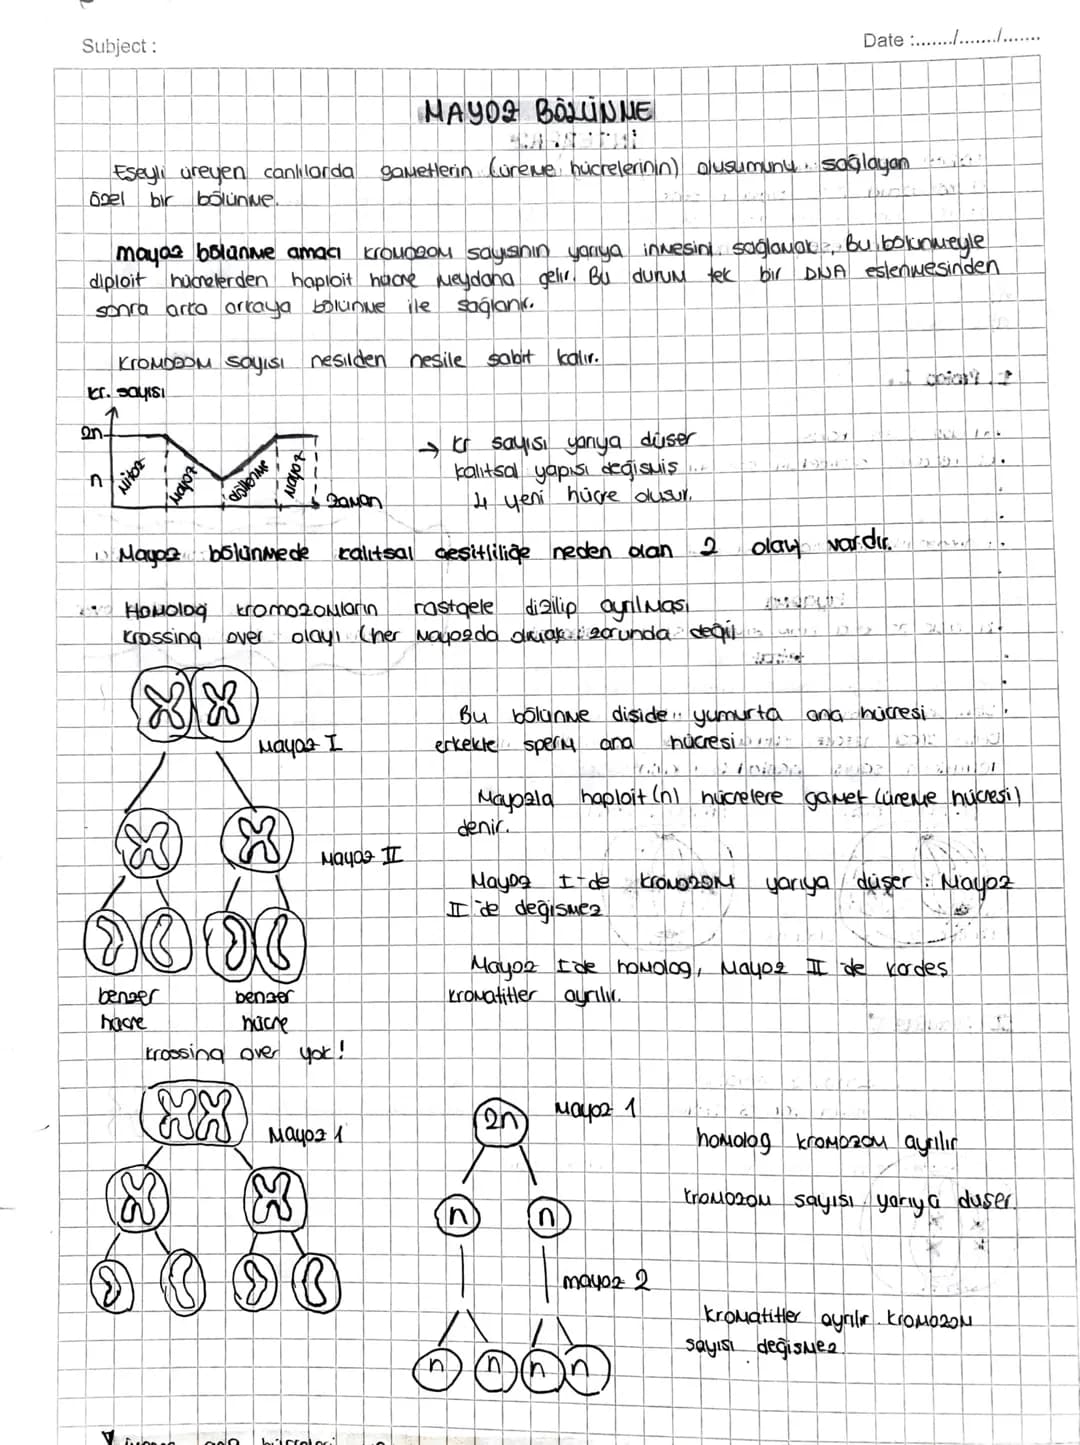 Subject :
Date :......./......./.......
MAYOZ BÖLÜNME
Eseyli üreyen canlılarda gametlerin (üreme hücrelerinin) olusumunu sağlayan
özel bir bölünme.
mayoz bölünme amacı kromozom sayısının yarıya inmesini sağlamak. Bu bölünmeyle
diploit hücrelerden haploit hücre meydana gelir. Bu durum tek bir DNA eslenmesinden
sonra arka arkaya bölünme ile sağlanır.
Kromozom sayısı nesilden nesile sabit kalır.
kr. sayısı
2n
n
mitoz
mayoz
döllenme
mayoz
zaman
→ kr sayısı yarıya düser
kalıtsal yapısı değismis
4 yeni hücre olusur.
Mayoz bölünmede kalıtsal çesitliliğe neden olan 2 olay vardır.
Homolog kromozomların rastgele dizilip ayrılması
krossing over olayı (her mayozda olmak zorunda değil
Mayoz I
Bu bölünme diside yumurta ana hücresi
erkekte sperm ana hücresi
Mayozla haploit (n) hücrelere gamet (üreme hücresi)
denir.
Mayoz II
Mayoz I-de kromozom yarıya düşer Mayoz
II de değismez
Mayoz I de homolog, Mayoz II de kardes
kromatitler ayrılır.
benzer hücre
benzer hücre
krossing over yok!
Mayoz 1
2n
Mayoz 1
homolog kromozom ayrılır
kromozom sayısı yarıya duser.
n
n
mayoz 2
kromatitler ayrılır kromozom
sayısı değismez
n n n n
ana hücreleri